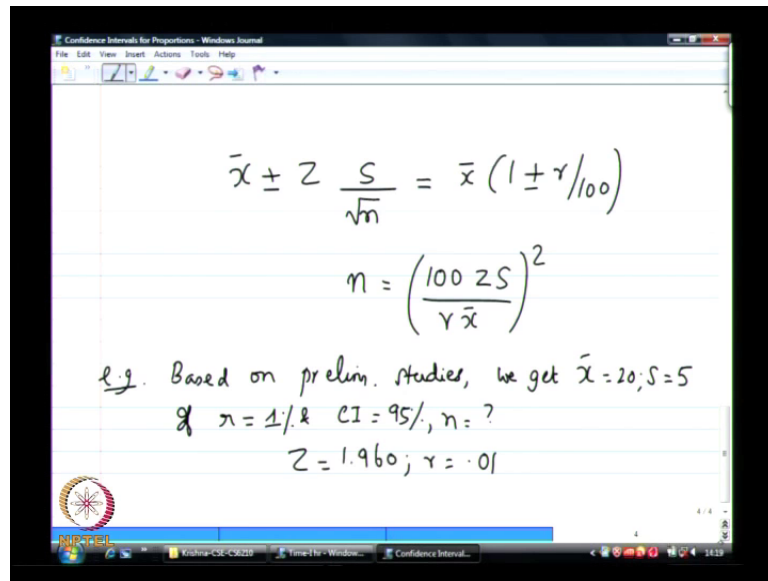 Confidence Intervals for Proportions - Windows Journal
File Edit View Insert Actions Tools Help
x̄ ± Z S/√n = x̄ (1 ± r/100)
n = (100 Z S / r x̄)²
e.g. Based on prelim. studies, we get x̄ = 20; S = 5
If r = 1% & CI = 95%, n = ?
Z = 1.960; r = .01
4 / 4
4
NPTEL
Krishna-CSE-CS6210
Time-1 hr - Window...
Confidence Interval...
14:19